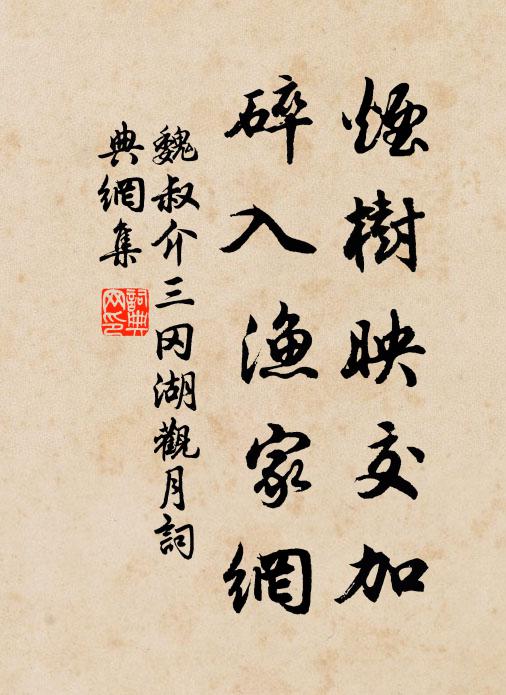 煙樹映交加
碎入漁家網
魏叔介三冈湖觀月詞
典網集
詞典網印